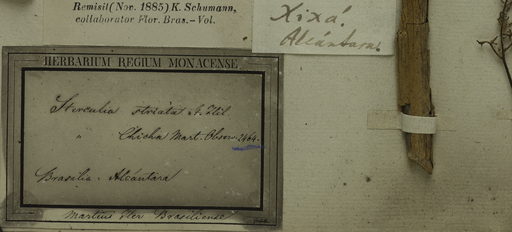 Remisit (Nov. 1885) K. Schumann,
collaborator Flor. Bras. - Vol.
Xixá.
Alcántara.
HERBARIUM REGIUM MONACENSE.
Sterculia striata A. St Hil.
" Chicha Mart. Obser. 2464.
Brasilia. Alcántara
Martius Iter Brasiliense